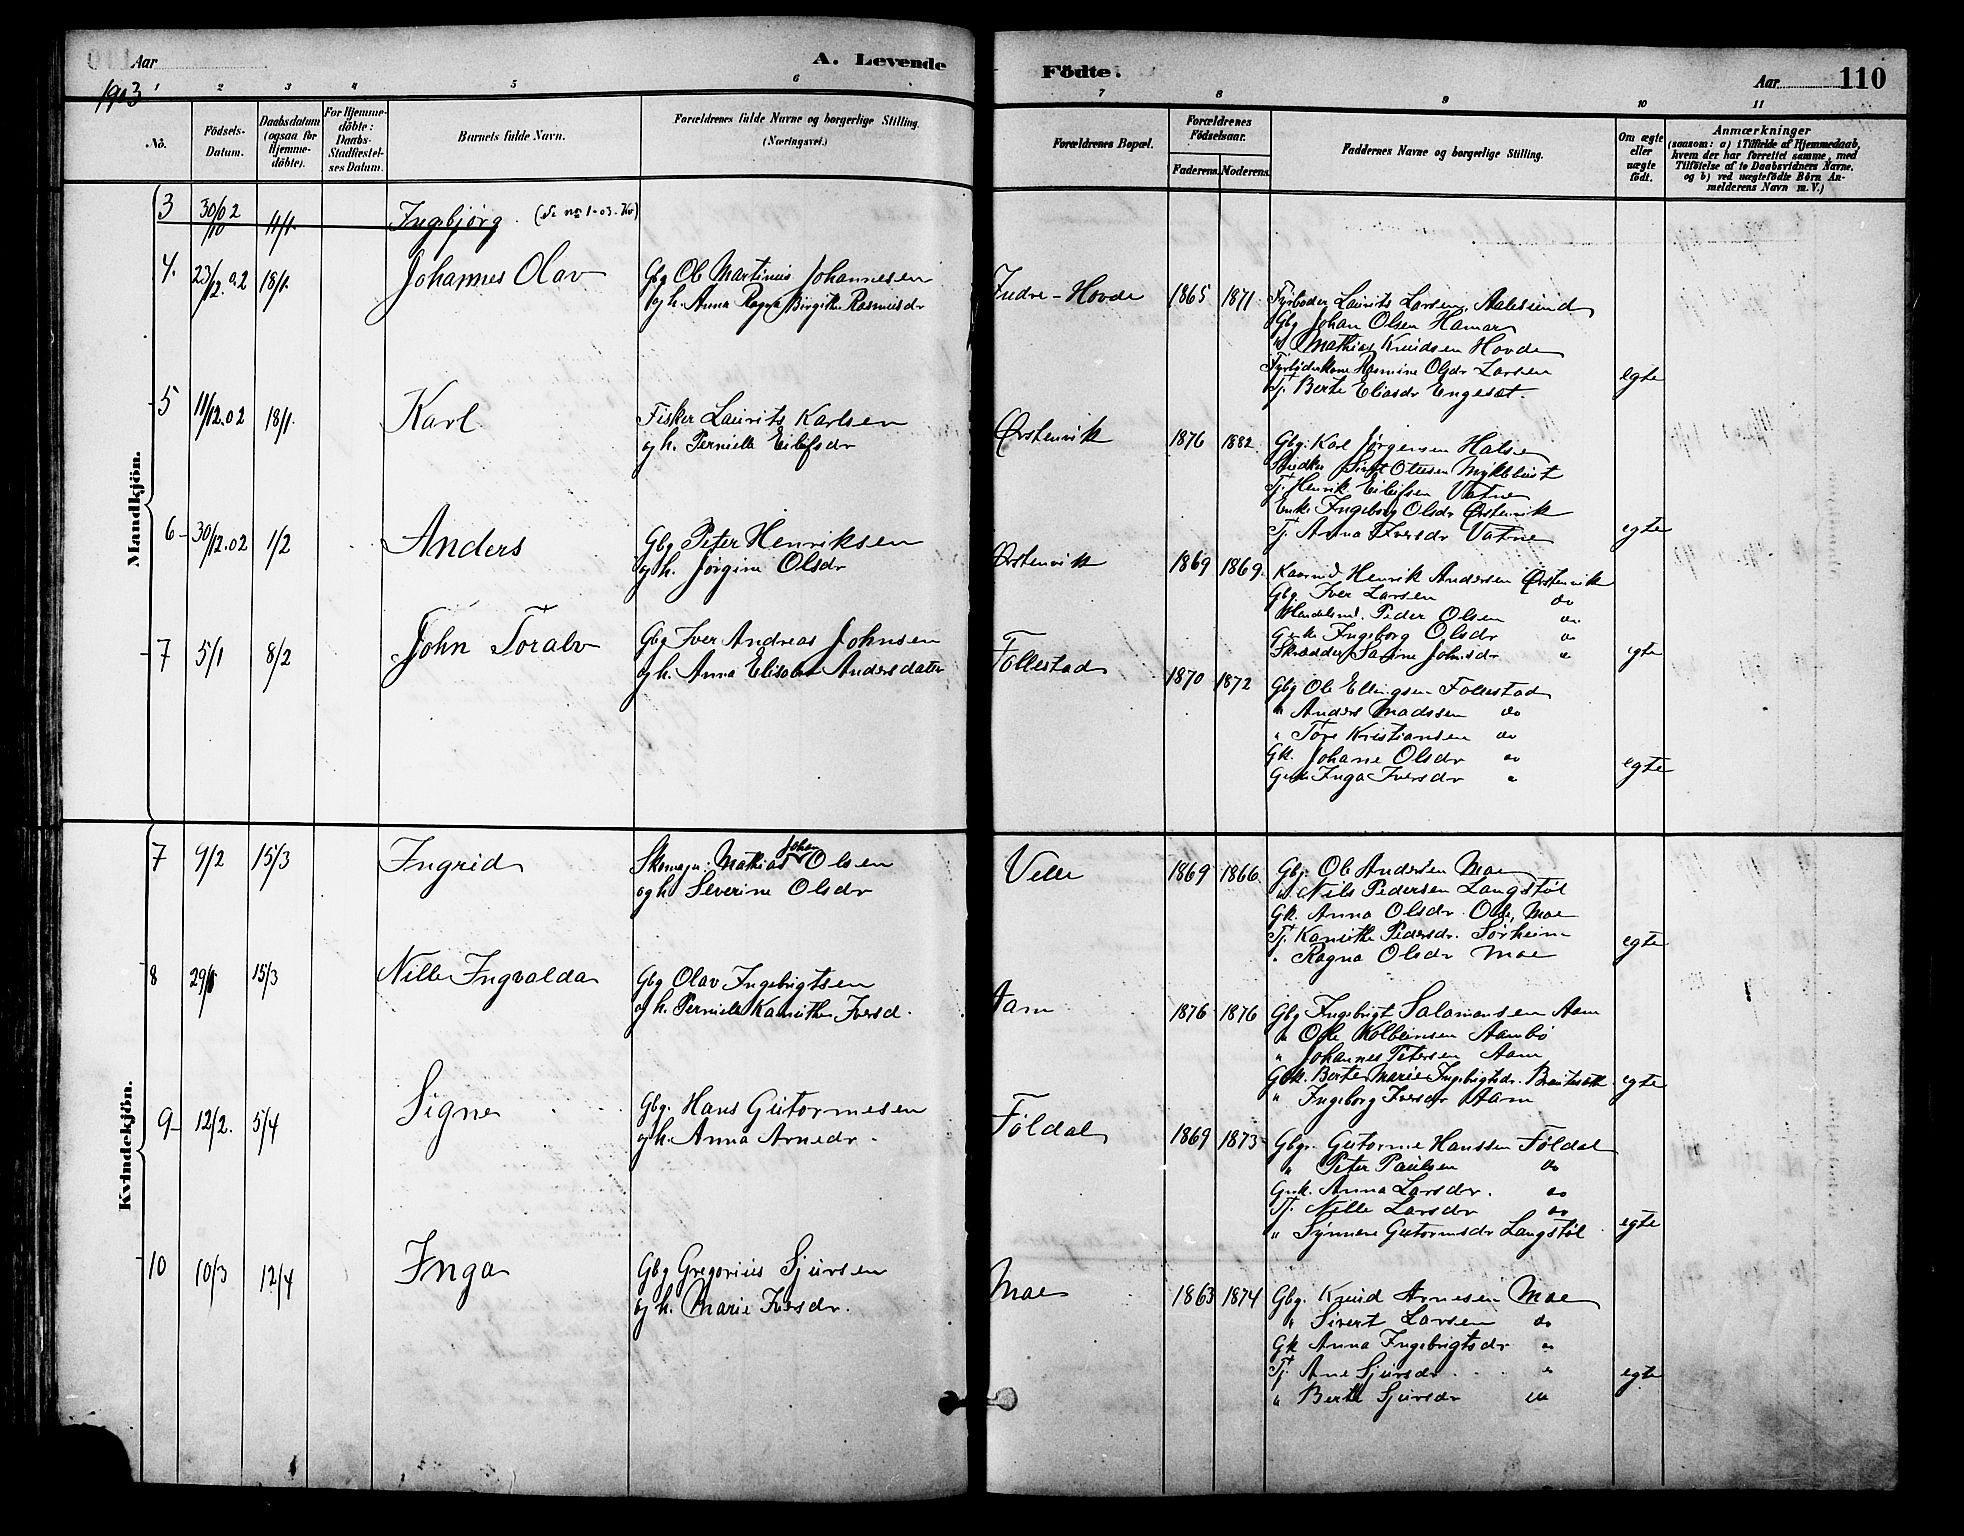 Aar
1903
A. Levende
Födte.
Aar
110
1 2 3 4 5 6 7 8 9 10 11
No.
Födsels-Datum.
Daabsdatum (ogsaa for Hjemme-döbte).
For Hjemme-döbte: Daabs-Stadfæstel-ses Datum.
Barnets fulde Navn.
Forældrenes fulde Navne og borgerlige Stilling.
(Næringsvei.)
Forældrenes Bopæl.
Forældrenes Födselsaar.
Faderens. Moderens.
Faddernes Navne og borgerlige Stilling.
Om ægte eller uægte födt.
Anmærkninger
(saasom: a) i Tilfælde af Hjemmedaab,
hvem der har forrettet samme, med
Tilföielse af to Daabsvidners Navne,
og b) ved uægtefödte Börn An-
melderens Navn m. V.)
Mandkjön.
3 30/10 02 11/1 Ingebjørg (Se no 1-03. Kv)
4. 23/12.02 18/1. Johannes Olav
Gbg Ole Martinus Johannesen
og h. Anna Ragna Birgithe Rasmusdr
Indre-Hovde 1865 1871
Fyrbøder Laurits Larsen, Aalesund
Gbg Johan Olsen Hamar
" Mathias Knudsen Hovde
Fyrbøderkone Rasmine Olsdr Larsen
Tj. Berte Eliasdr Engeset.
egte
5 11/12.02 18/1. Karl
Fisker Laurits Karlsen
og h. Pernille Eilifsdr
Ørstenvik 1876 1882
Gbg. Karl Jørgensen Halse
Snedker Sivert Olsen Myklebust
Tj. Henrik Eilifsen Vatne
Enke Ingeborg Olsdr Ørstenvik
Tj. Anna Iversdr Vatne
egte
6 30/12.02 1/2 Anders
Gbg Peter Henriksen
og h. Jørgine Olsdr
Ørstenvik 1869 1869.
Kaarmd Henrik Andersen Ørstenvik
Gbg. Iver Larsen do
Handelsmd. Peder Olsen do
Gmk. Ingeborg Olsdr "
Skrædder Sanine Johnsdr "
egte
7 5/1 8/2 John Toralv
Gbg Iver Andreas Johnsen
og h. Anna Elisabet Andersdatter
Follestad 1870 1872
Gbg Ole Ellingsen Follestad
" Anders Madssen do
" Tore Kristiansen do
Gk. Johane Olsdr do
Gmk Inga Iversdr "
egte
Kvindekjön.
7 9/2 15/3 Ingrid
Skomagr. Mathias Johan Olsen
og h. Severine Olsdr
Velle 1869 1866
Gbg. Ole Andersen Moe
" Nils Pedersen Langstøl
Gk. Anna Olsdr Moe
Tj. Kanutte Pedersdr. Sørheim
" Ragna Olsdr Moe
egte
8 29/1 15/3 Nille Ingvalda
Gbg Olav Ingebrigtsen
og h. Pernille Kanuthe Iversd.
Aam 1876 1876
Gbg Ingebrigt Salamonsen Aam
" Ole Kolbeinsen Aambø
" Johannes Petersen Aam
Gbk. Berte Marie Ingebrigtsdr.
" Ingeborg Iversdr Aam
egte
9 12/2. 5/4 Signe
Gbg. Hans Guttormesen
og h. Anna Arnedr.
Føldal 1869 1873
Gbg. Guttorme Hanssen Føldal
" Peter Paulsen do
Gmk. Anna Larsdr. do
Tj. Nille Larsdr do
" Synnøve Guttormsdr Langstøl
egte
10 10/3 12/4 Inga
Gbg Gregorius Sjursen
og h. Marie Iversdr.
Moe 1863 1874
Gbg. Knud Arnesen Moe
" Sivert Larsen do
Gk Anna Ingebrigtsdr "
Tj. Ane Sjursdr "
" Berte Sjursdr do
egte